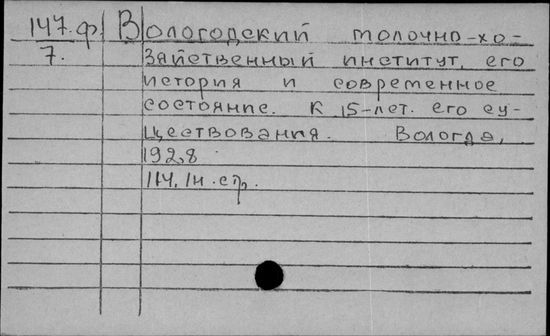 147.ф. Вологодский молочно-хо-
7. зяйственный институт, его
история и современное
состояние. К 15-лет. его су-
ществования. Вологда,
1928
114, IH. стр.